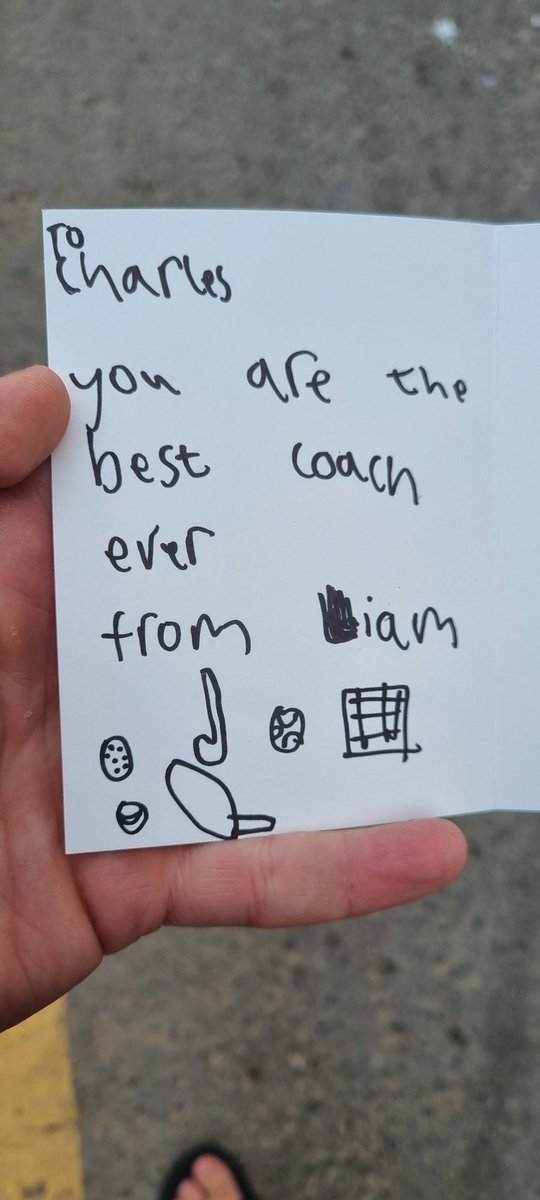 To
Charles
you are the
best coach
ever
from Liam